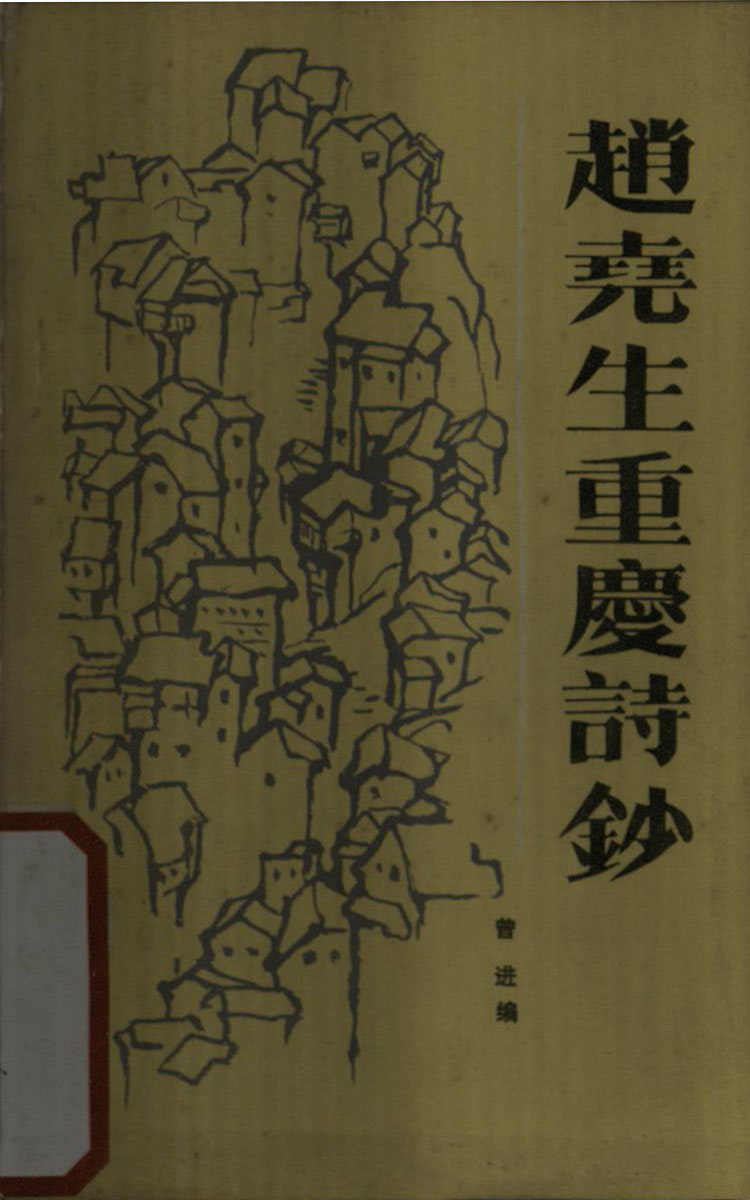 趙堯生重慶詩鈔
曾进编